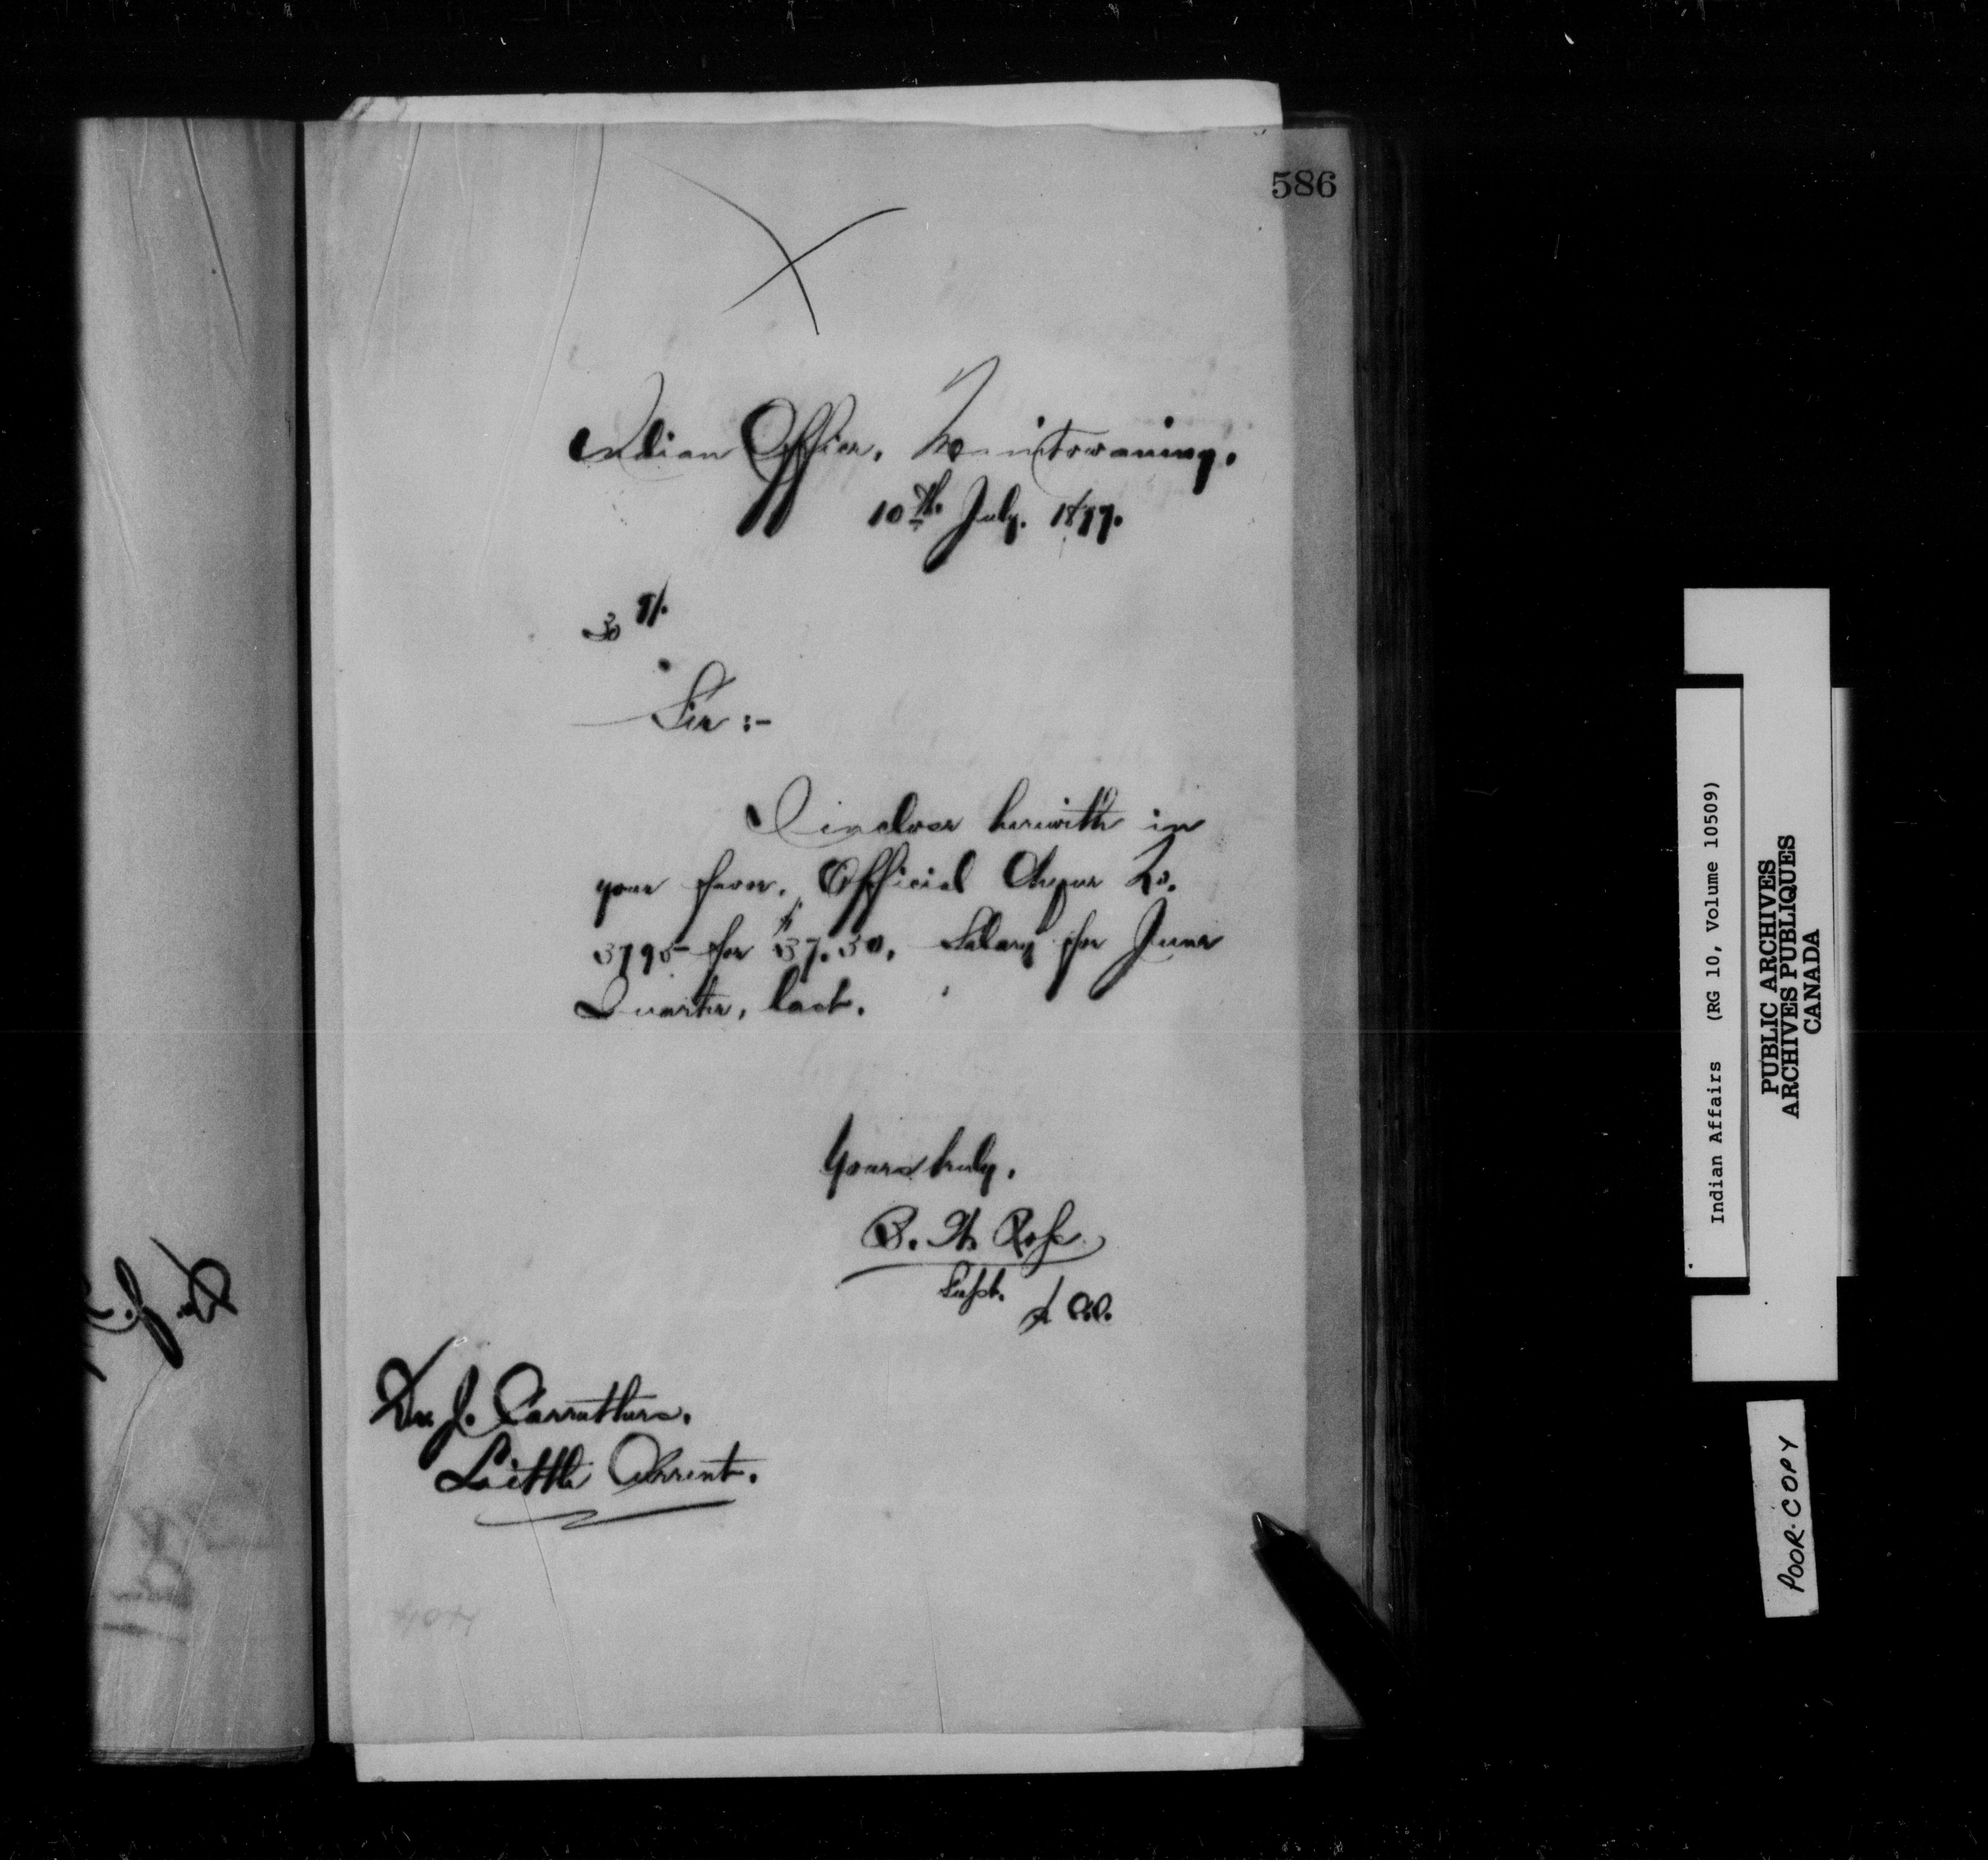 586
Indian Office, Manitowaning.
10th. July. 1897.
Sir :-
I inclose herewith in
your favor. Official Cheque No.
3795 for $37.50. Salary for June
Quarter, last.
Yours truly,
B. W. Ross
Supt.
Dr J. Carruthers.
Little Current.
Indian Affairs (RG 10, Volume 10509)
PUBLIC ARCHIVES
ARCHIVES PUBLIQUES
CANADA
POOR COPY